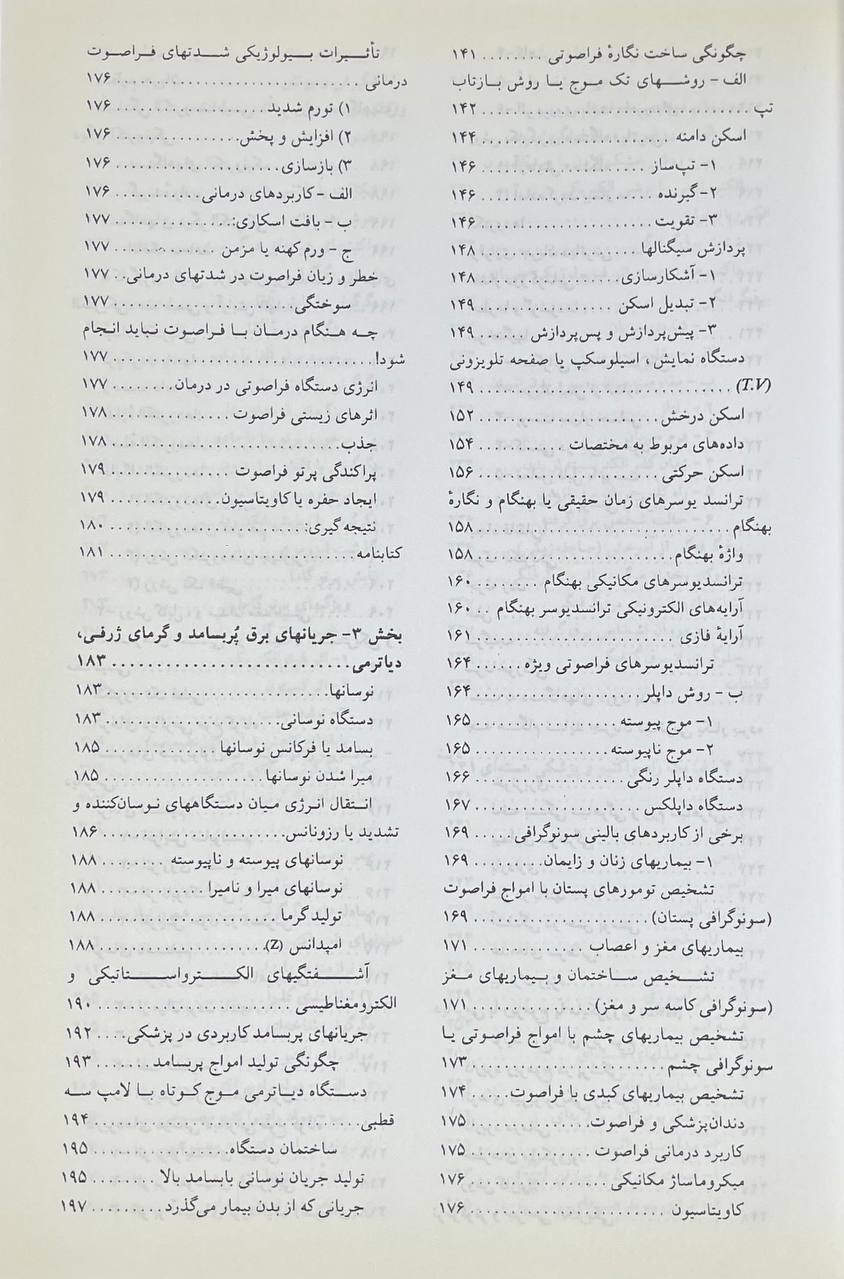 چگونگی ساخت نگارهٔ فراصوتی ........ ۱۴۱
الف - روشهای تک موج یا روش بازتاب
تپ ................................ ۱۴۲
اسکن دامنه ........................ ۱۴۴
۱- تپ‌ساز ........................ ۱۴۶
۲- گیرنده ........................ ۱۴۶
۳- تقویت ........................ ۱۴۶
پردازش سیگنالها ................... ۱۴۸
۱- آشکارسازی .................... ۱۴۸
۲- تبدیل اسکن .................... ۱۴۹
۳- پیش‌پردازش و پس‌پردازش ........ ۱۴۹
دستگاه نمایش، اسیلوسکپ یا صفحه تلویزونی
(T.V) ............................ ۱۴۹
اسکن درخش ........................ ۱۵۲
داده‌های مربوط به مختصات .......... ۱۵۴
اسکن حرکتی ........................ ۱۵۶
ترانسد یوسرهای زمان حقیقی یا بهنگام و نگارهٔ
بهنگام ............................ ۱۵۸
واژهٔ بهنگام ...................... ۱۵۸
ترانسدیوسرهای مکانیکی بهنگام ...... ۱۶۰
آرایه‌های الکترونیکی ترانسدیوسر بهنگام .. ۱۶۰
آرایهٔ فازی ...................... ۱۶۱
ترانسدیوسرهای فراصوتی ویژه ...... ۱۶۴
ب - روش داپلر .................... ۱۶۴
۱- موج پیوسته .................... ۱۶۵
۲- موج ناپیوسته .................. ۱۶۵
دستگاه داپلر رنگی ................ ۱۶۶
دستگاه داپلکس .................... ۱۶۷
برخی از کاربردهای بالینی سونوگرافی ..... ۱۶۹
۱- بیماریهای زنان و زایمان ........ ۱۶۹
تشخیص تومورهای پستان با امواج فراصوت
(سونوگرافی پستان) ................ ۱۶۹
بیماریهای مغز و اعصاب ............ ۱۷۱
تشخیص ساختمان و بیماریهای مغز
(سونوگرافی کاسه سر و مغز) ........ ۱۷۱
تشخیص بیماریهای چشم با امواج فراصوتی یا
سونوگرافی چشم .................... ۱۷۳
تشخیص بیماریهای کبدی با فراصوت ..... ۱۷۴
دندان‌پزشکی و فراصوت .............. ۱۷۵
کاربرد درمانی فراصوت .............. ۱۷۵
میکروماساژ مکانیکی ................ ۱۷۶
کاویتاسیون ........................ ۱۷۶
تأثیرات بیولوژیکی شدتهای فراصوت
درمانی ............................ ۱۷۶
۱) تورم شدید ...................... ۱۷۶
۲) افزایش و پخش .................. ۱۷۶
۳) بازسازی ........................ ۱۷۶
الف - کاربردهای درمانی ............ ۱۷۶
ب - بافت اسکاری: .................. ۱۷۷
ج - ورم کهنه یا مزمن .............. ۱۷۷
خطر و زیان فراصوت در شدتهای درمانی .. ۱۷۷
سوختگی ............................ ۱۷۷
چه هنگام درمان با فراصوت نباید انجام
شود! .............................. ۱۷۷
انرژی دستگاه فراصوتی در درمان ...... ۱۷۷
اثرهای زیستی فراصوت .............. ۱۷۸
جذب .............................. ۱۷۸
پراکندگی پرتو فراصوت .............. ۱۷۹
ایجاد حفره یا کاویتاسیون .......... ۱۷۹
نتیجه گیری: ...................... ۱۸۰
کتابنامه .......................... ۱۸۱
بخش ۳- جریانهای برق پُربسامد و گرمای ژرفی،
دیاترمی .......................... ۱۸۳
نوسانها .......................... ۱۸۳
دستگاه نوسانی .................... ۱۸۳
بسامد یا فرکانس نوسانها .......... ۱۸۵
میرا شدن نوسانها .................. ۱۸۵
انتقال انرژی میان دستگاههای نوسان‌کننده و
تشدید یا رزونانس .................. ۱۸۶
نوسانهای پیوسته و ناپیوسته ........ ۱۸۸
نوسانهای میرا و نامیرا ............ ۱۸۸
تولید گرما ........................ ۱۸۸
امپدانس (Z) ...................... ۱۸۸
آشفتگیهای الکترواستاتیکی و
الکترومغناطیسی .................... ۱۹۰
جریانهای پربسامد کاربردی در پزشکی .... ۱۹۲
چگونگی تولید امواج پربسامد ........ ۱۹۳
دستگاه دیاترمی موج کوتاه با لامپ سه
قطبی .............................. ۱۹۴
ساختمان دستگاه .................... ۱۹۵
تولید جریان نوسانی بابسامد بالا ...... ۱۹۵
جریانی که از بدن بیمار می‌گذرد ........ ۱۹۷